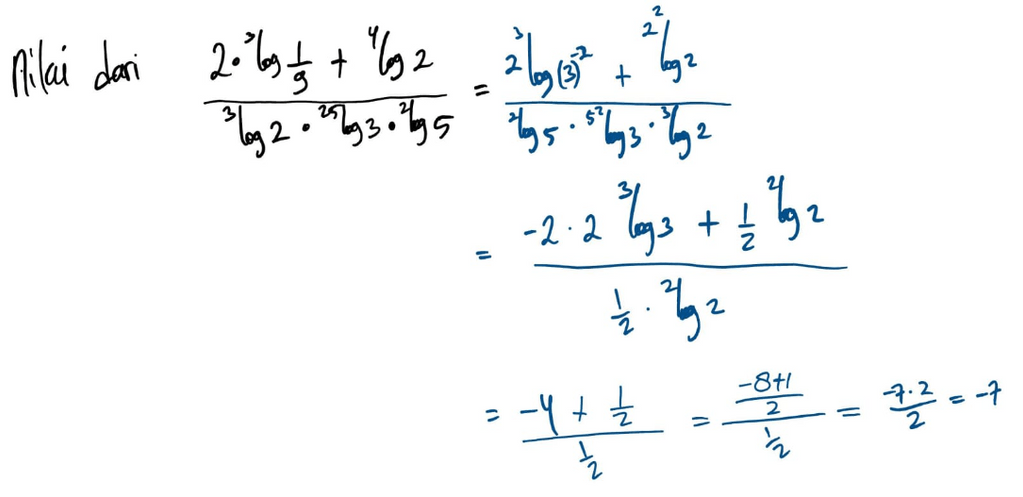 Nilai dari (2·³log 1/9 + ⁴log 2) / (³log 2 · ²⁵log 3 · ²log 5) = (2 ³log (3)⁻² + ^(2²)log 2) / (²log 5 · ^(5²)log 3 · ³log 2)
= (-2·2 ³log 3 + 1/2 ²log 2) / (1/2 · ²log 2)
= (-4 + 1/2) / (1/2) = ((-8+1)/2) / (1/2) = (-7·2)/2 = -7